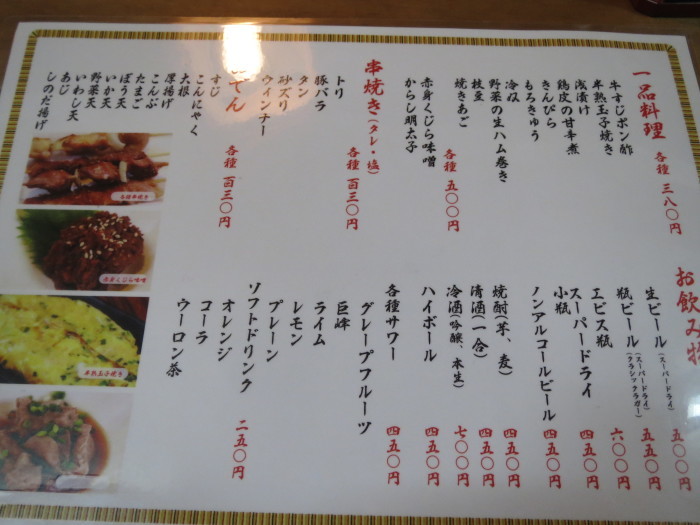 一品料理
各種 三八〇円
牛すじポン酢
半熟玉子焼き
浅漬け
鶏皮の甘辛煮
きんぴら
もろきゅう
冷奴
野菜の生ハム巻き
枝豆
焼きあご
各種 五〇〇円
赤身くじら味噌
からし明太子
串焼き(タレ・塩)
各種 百三〇円
トリ
豚バラ
タン
砂ズリ
ウィンナー
でん
各種 百三〇円
すじ
こんにゃく
大根
厚揚げ
こんぶ
たまご
ぼう天
いか天
野菜天
いわし天
あじ
しのだ揚げ
お飲み物
生ビール(スーパードライ) 五〇〇円
瓶ビール(スーパードライ)(クラシックラガー) 五五〇円
ヱビス瓶 六〇〇円
スーパードライ小瓶 四五〇円
ノンアルコールビール 四五〇円
焼酎(芋、麦) 四五〇円
清酒(一合) 四五〇円
冷酒(吟醸、本生) 七〇〇円
ハイボール 四五〇円
各種サワー 四五〇円
グレープフルーツ
巨峰
ライム
レモン
プレーン
ソフトドリンク 二五〇円
オレンジ
コーラ
ウーロン茶
半熟玉子焼き